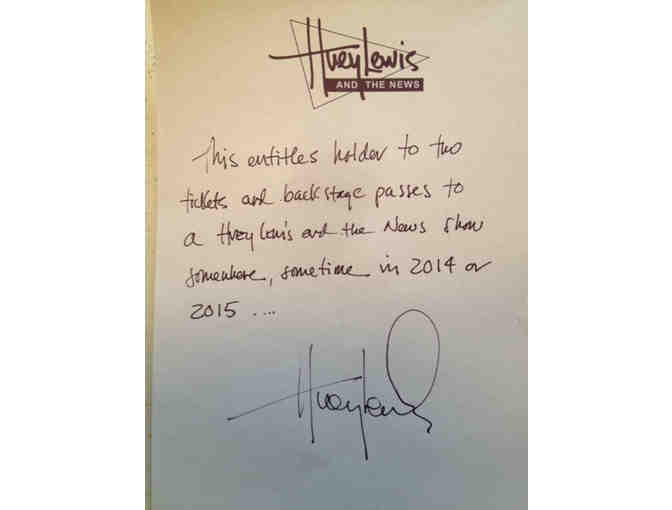 Huey Lewis
AND THE NEWS
This entitles holder to two
tickets and backstage passes to
a Huey Lewis and the News show
somewhere, sometime in 2014 or
2015 ....
Huey Lewis